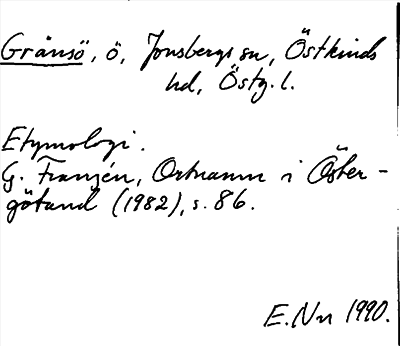 Gränsö, ö, Jonsbergs sn, Östkinds
hd, Östg. l.
Etymologi.
G. Franzén, Ortnamn i Öster-
götland (1982), s. 86.
E. Nn 1990.